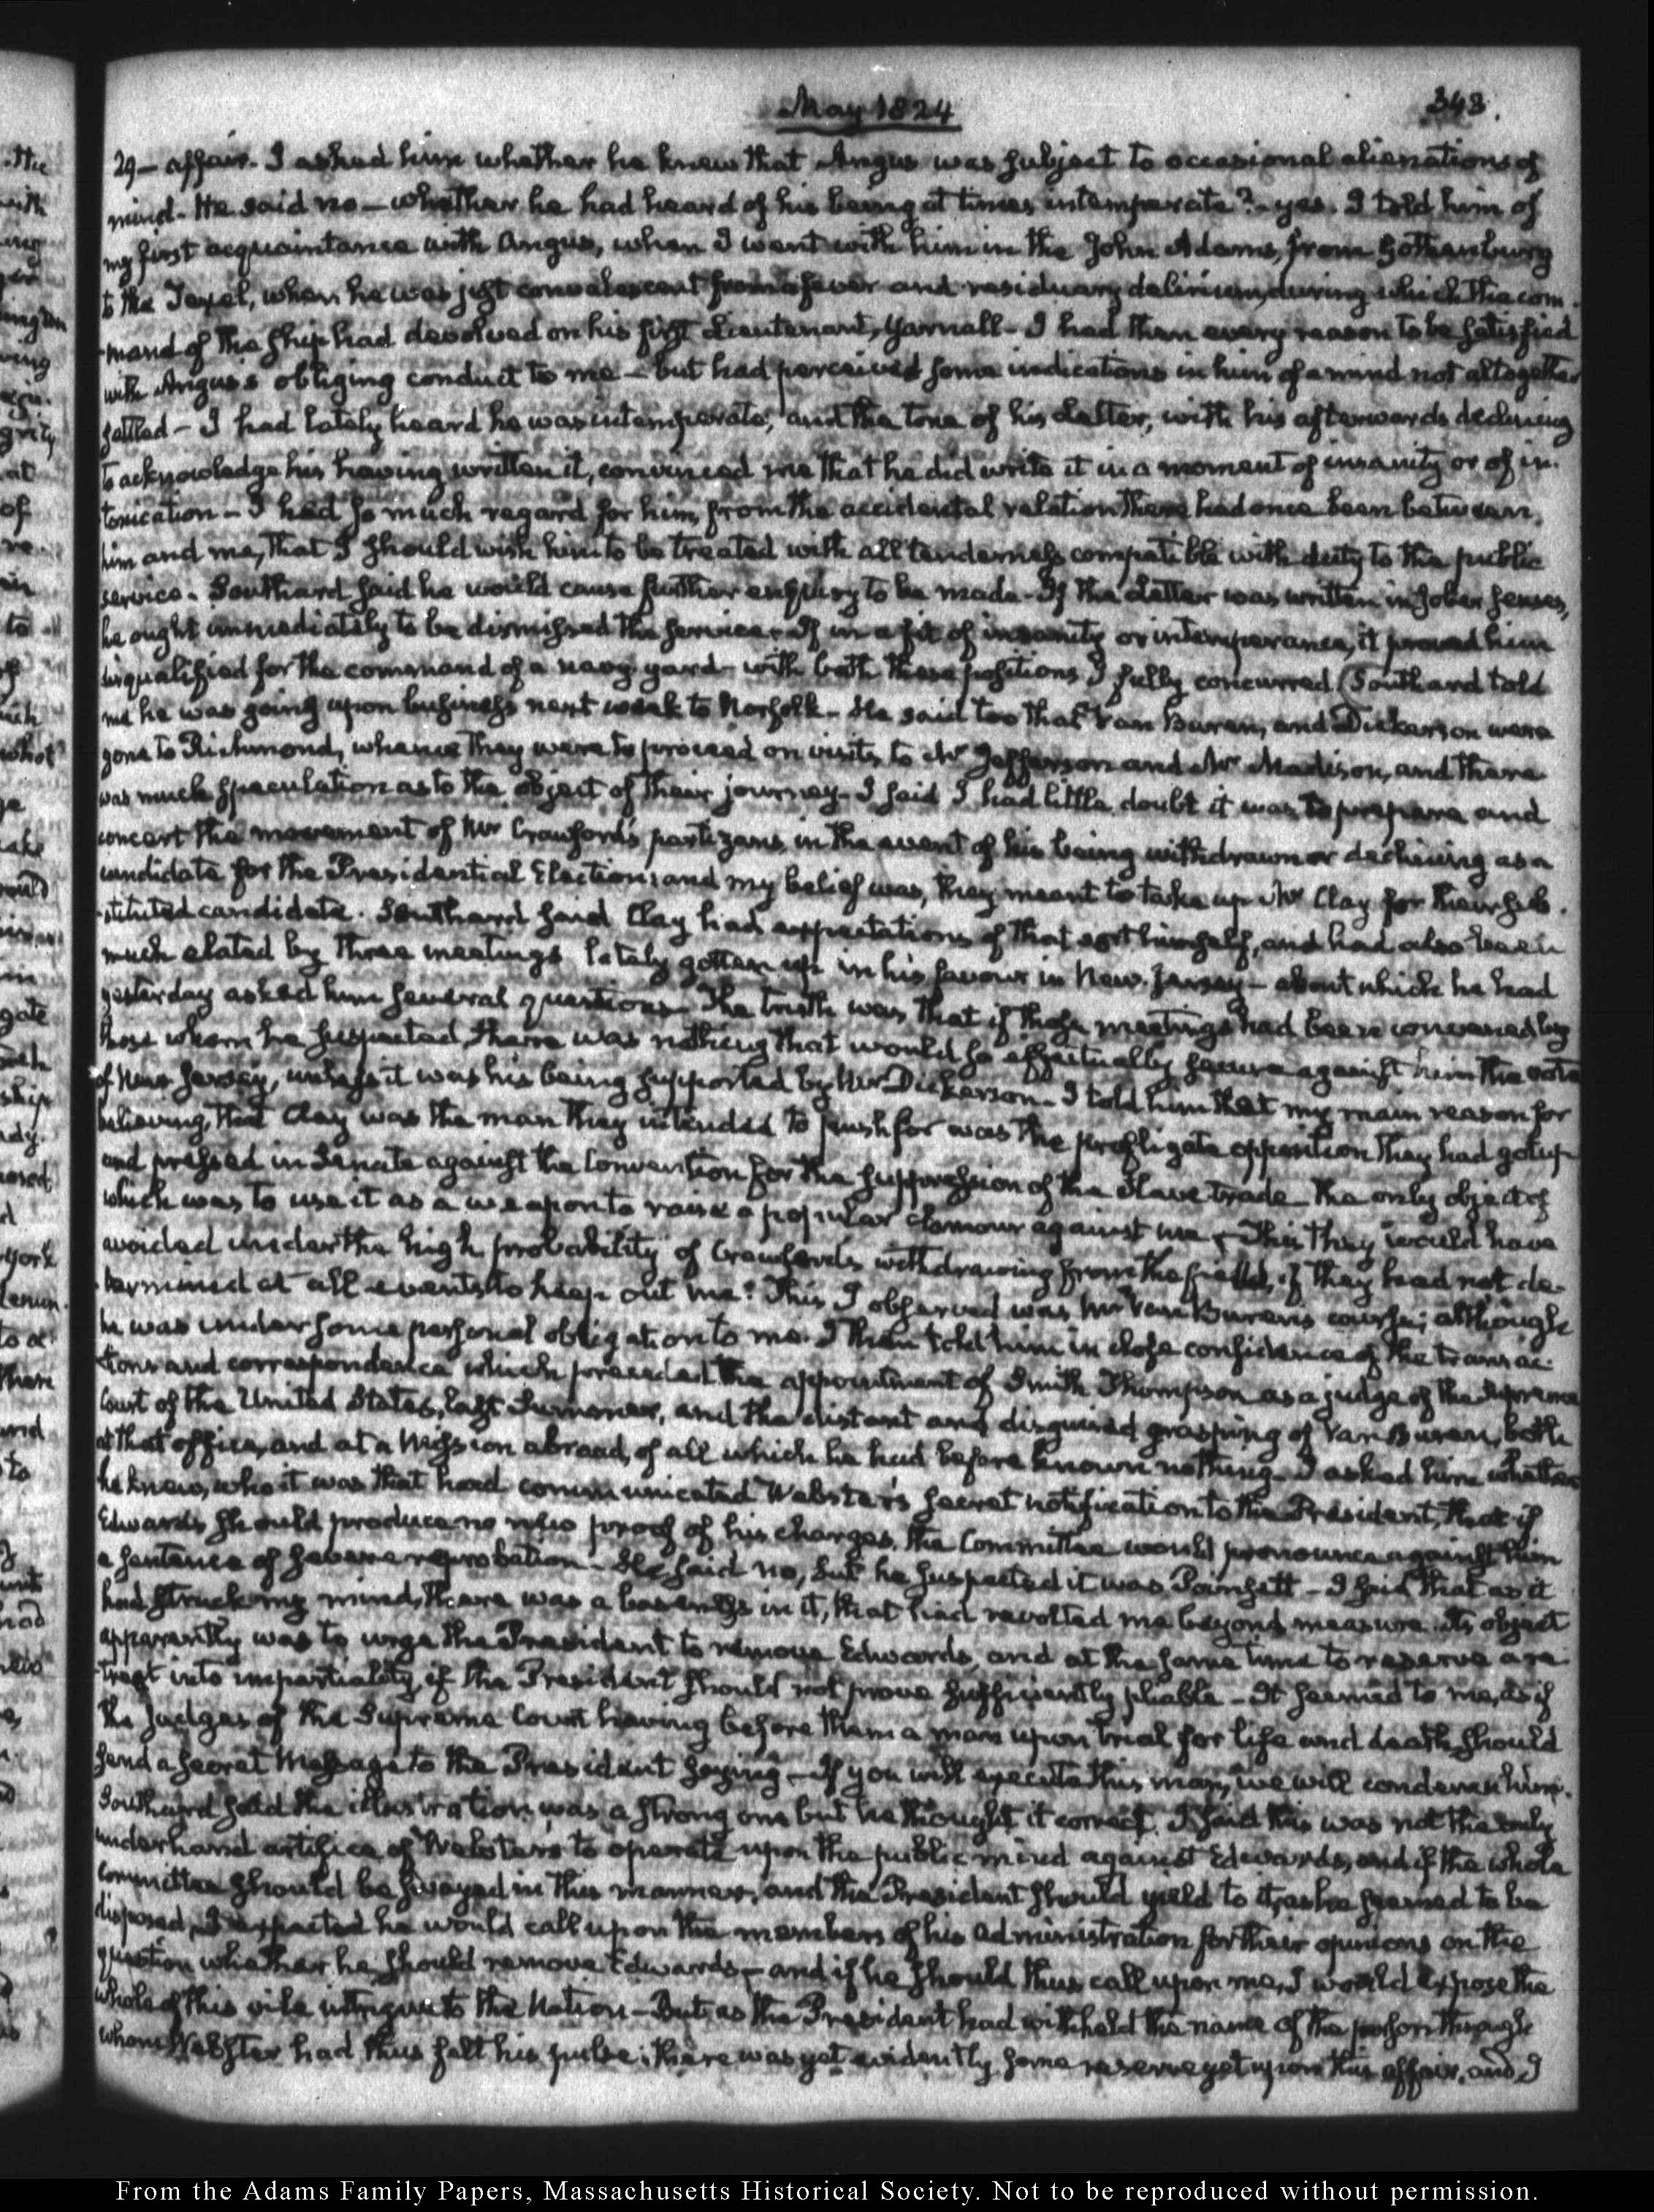 May 1824
343.
29— affair. I asked him whether he knew that Angus was subject to occasional alienations of
mind. He said no— whether he had heard of his being at times intemperate?— yes. I told him of
my first acquaintance with Angus, when I went with him in the John Adams, from Gothenburg
to the Texel, when he was just convalescent from a fever and residuary delirium, during which the com-
mand of the ship had devolved on his first Lieutenant, Yarnall— I had then every reason to be satisfied
with Angus's obliging conduct to me— but had perceived some indications in him of a mind not altogether
settled— I had lately heard he was intemperate, and the tone of his Letter, with his afterwards declining
to acknowledge his having written it, convinced me that he did write it in a moment of insanity or of in-
toxication— I had so much regard for him, from the accidental relation there had once been between
him and me, that I should wish him to be treated with all tenderness compatible with duty to the public
service. Southard said he would cause further enquiry to be made— If the Letter was written in sober senses,
he ought immediately to be dismissed the service— If in a fit of insanity or intemperance, it proved him
disqualified for the command of a navy yard— with both these positions I fully concurred (Southard told
me he was going upon business next week to Norfolk— He said too that Van Buren, and Dickerson were
gone to Richmond, whence they were to proceed on visits to Mr Jefferson and Mr Madison, and there
was much speculation as to the object of their journey— I said I had little doubt it was to prepare and
concert the movement of Mr Crawford's partizans, in the event of his being withdrawn or declining as a
candidate for the Presidential Election; and my belief was, they meant to take up Mr Clay for their sub-
stituted candidate. Southard said Clay had expectations of that sort himself, and had also been
much elated by three meetings lately gotten up in his favour in New-Jersey— about which he had
yesterday asked him several questions— The truth was, that if those meetings had been convened by
those whom he suspected, there was nothing that would so effectually secure against him the vote
of New Jersey, unless it was his being supported by Mr Dickerson— I told him that my main reason for
believing, that Clay was the man they intended to push for was the profligate opposition they had got up
and pressed in Senate against the Convention for the suppression of the Slave trade— the only object of
which was to use it as a weapon to raise a popular clamour against me— This they would have
avoided under the high probability of Crawford's withdrawing from the field, if they had not de-
termined at all events to keep out me. This I observed was Mr Van Buren's course; although
he was under some personal obligation to me. I then told him in close confidence of the transac-
tions and correspondence which preceded the appointment of Smith Thompson as a judge of the Supreme
Court of the United States, last Summer, and the distant and disguised grasping of Van Buren, both
at that office, and at a Mission abroad, of all which he had before known nothing— I asked him whether
he knew, who it was that had communicated Webster's secret notification to the President, that if
Edwards should produce no new proof of his charges, the Committee would pronounce against him
a sentence of severe reprobation— He said no, but he suspected it was Poinsett— I said that as it
had struck my mind, there was a baseness in it, that had revolted me beyond measure. Its object
apparently was to urge the President to remove Edwards, and at the same time to reserve a re-
treat into impartiality, if the President should not prove sufficiently pliable— It seemed to me, as if
the Judges of the Supreme Court having before them a man upon trial for life and death should
send a secret Message to the President saying— If you will execute this man, we will condemn him.
Southard said the illustration was a strong one but he thought it correct. I said this was not the only
underhand artifice of Webster's to operate upon the public mind against Edwards, and if the whole
Committee should be swayed in this manner, and the President should yield to it, as he seemed to be
disposed, I expected he would call upon the members of his administration for their opinions on the
question whether he should remove Edwards— and if he should thus call upon me, I would expose the
whole of this vile intrigue to the Nation— But as the President had withheld the name of the person through
whom Webster had thus felt his pulse, there was yet evidently some reserve yet upon this affair, and I
From the Adams Family Papers, Massachusetts Historical Society. Not to be reproduced without permission.